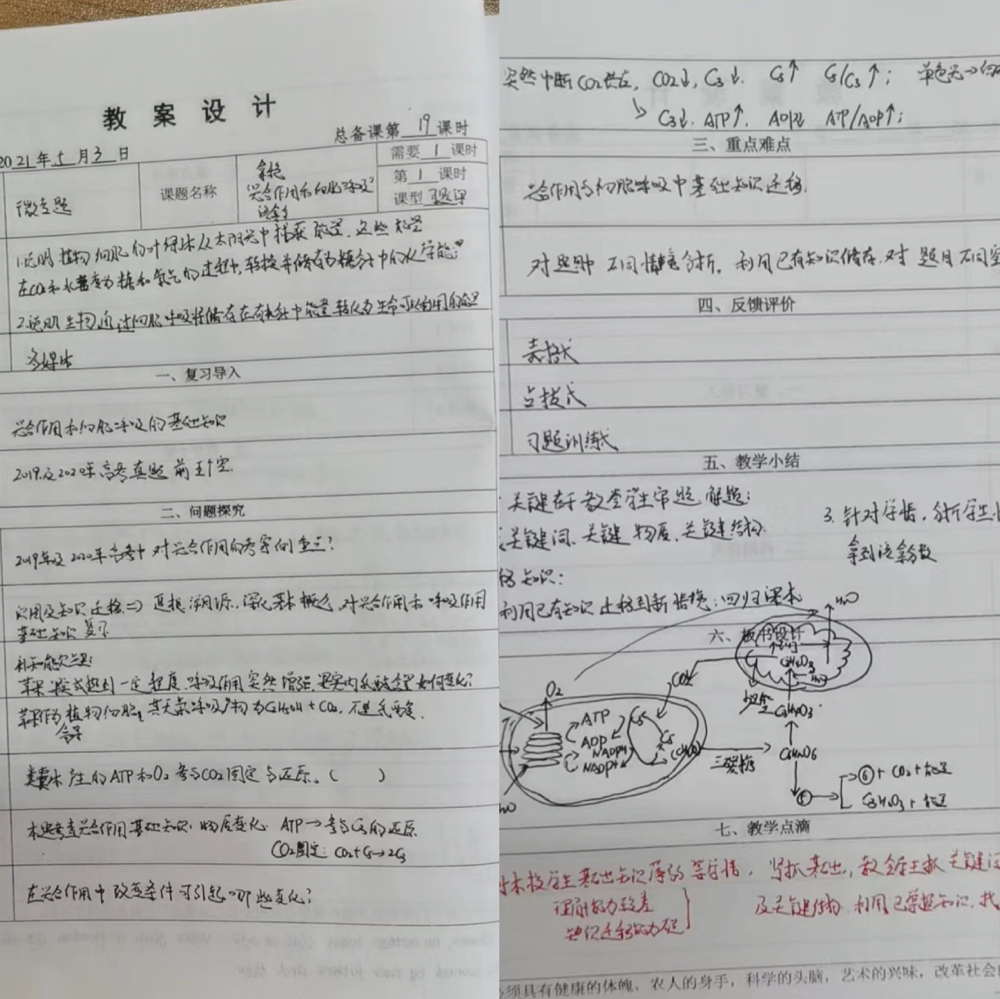 教案设计
总备课第 19 课时
2021年5月3日
需要 1 课时
第 1 课时
课型
微专题
课题名称
光合作用和细胞呼吸
1.说明植物细胞的叶绿体从太阳光中捕获能量,这些能量
在CO2和水转变为糖和氧气的过程中,转换并储存为糖分子中的化学能;
2.说明生物通过细胞呼吸将储存在有机分子中能量转化为生命可以利用的能量
多媒体
一、复习导入
光合作用和细胞呼吸的基础知识
2019及2020年高考真题 前五个空.
二、问题探究
2019年及2020年高考中对光合作用的考察侧重点?
识用及知识迁移⇒ 追根溯源,深化基本概念,对光合作用和呼吸作用
基础知识复习
苹果 成熟到一定程度,呼吸作用突然增强,果实内 如何变化?
苹果作为植物细胞,其无氧呼吸产物为C2H5OH+CO2,不是乳酸.
类囊体产生的ATP和O2参与CO2固定与还原。( )
本题考查光合作用基础知识:物质变化 ATP→参与C3的还原
CO2固定:CO2+C5→2C3
在光合作用中改变条件可引起哪些变化?
突然中断CO2供应, CO2↓, C3↓. C5↑ C5/C3↑; 单色光→
C3↓. ATP↑. ADP↓ ATP/ADP↑;
三、重点难点
光合作用与细胞呼吸中基础知识迁移.
对题中不同情境分析,利用已有知识储存,对题目不同
四、反馈评价
表格式
点拨式
习题训练式
五、教学小结
关键在于教会学生审题,解题:
关键词、关键物质、关键结构.
3.针对学情,分析学生
拿到该拿分数
知识:
利用已有知识迁移到新情境;回归课本
六、板书设计
H2O
CO2
C3H4O3
O2
ATP
ADP
NADPH
NADP+
C5
C3
(CH2O)
C3H4O3
三碳糖
C6H12O6
H2O
CO2+能量
C3H6O3+能量
七、教学点滴
对本校学生基础知识薄弱等学情, 紧抓基础,教会学生抓关键词
理解能力较差
知识迁移能力低
及关键结构.利用已掌握知识,找
必须具有健康的体魄,农人的身手,科学的头脑,艺术的兴味,改革社会的